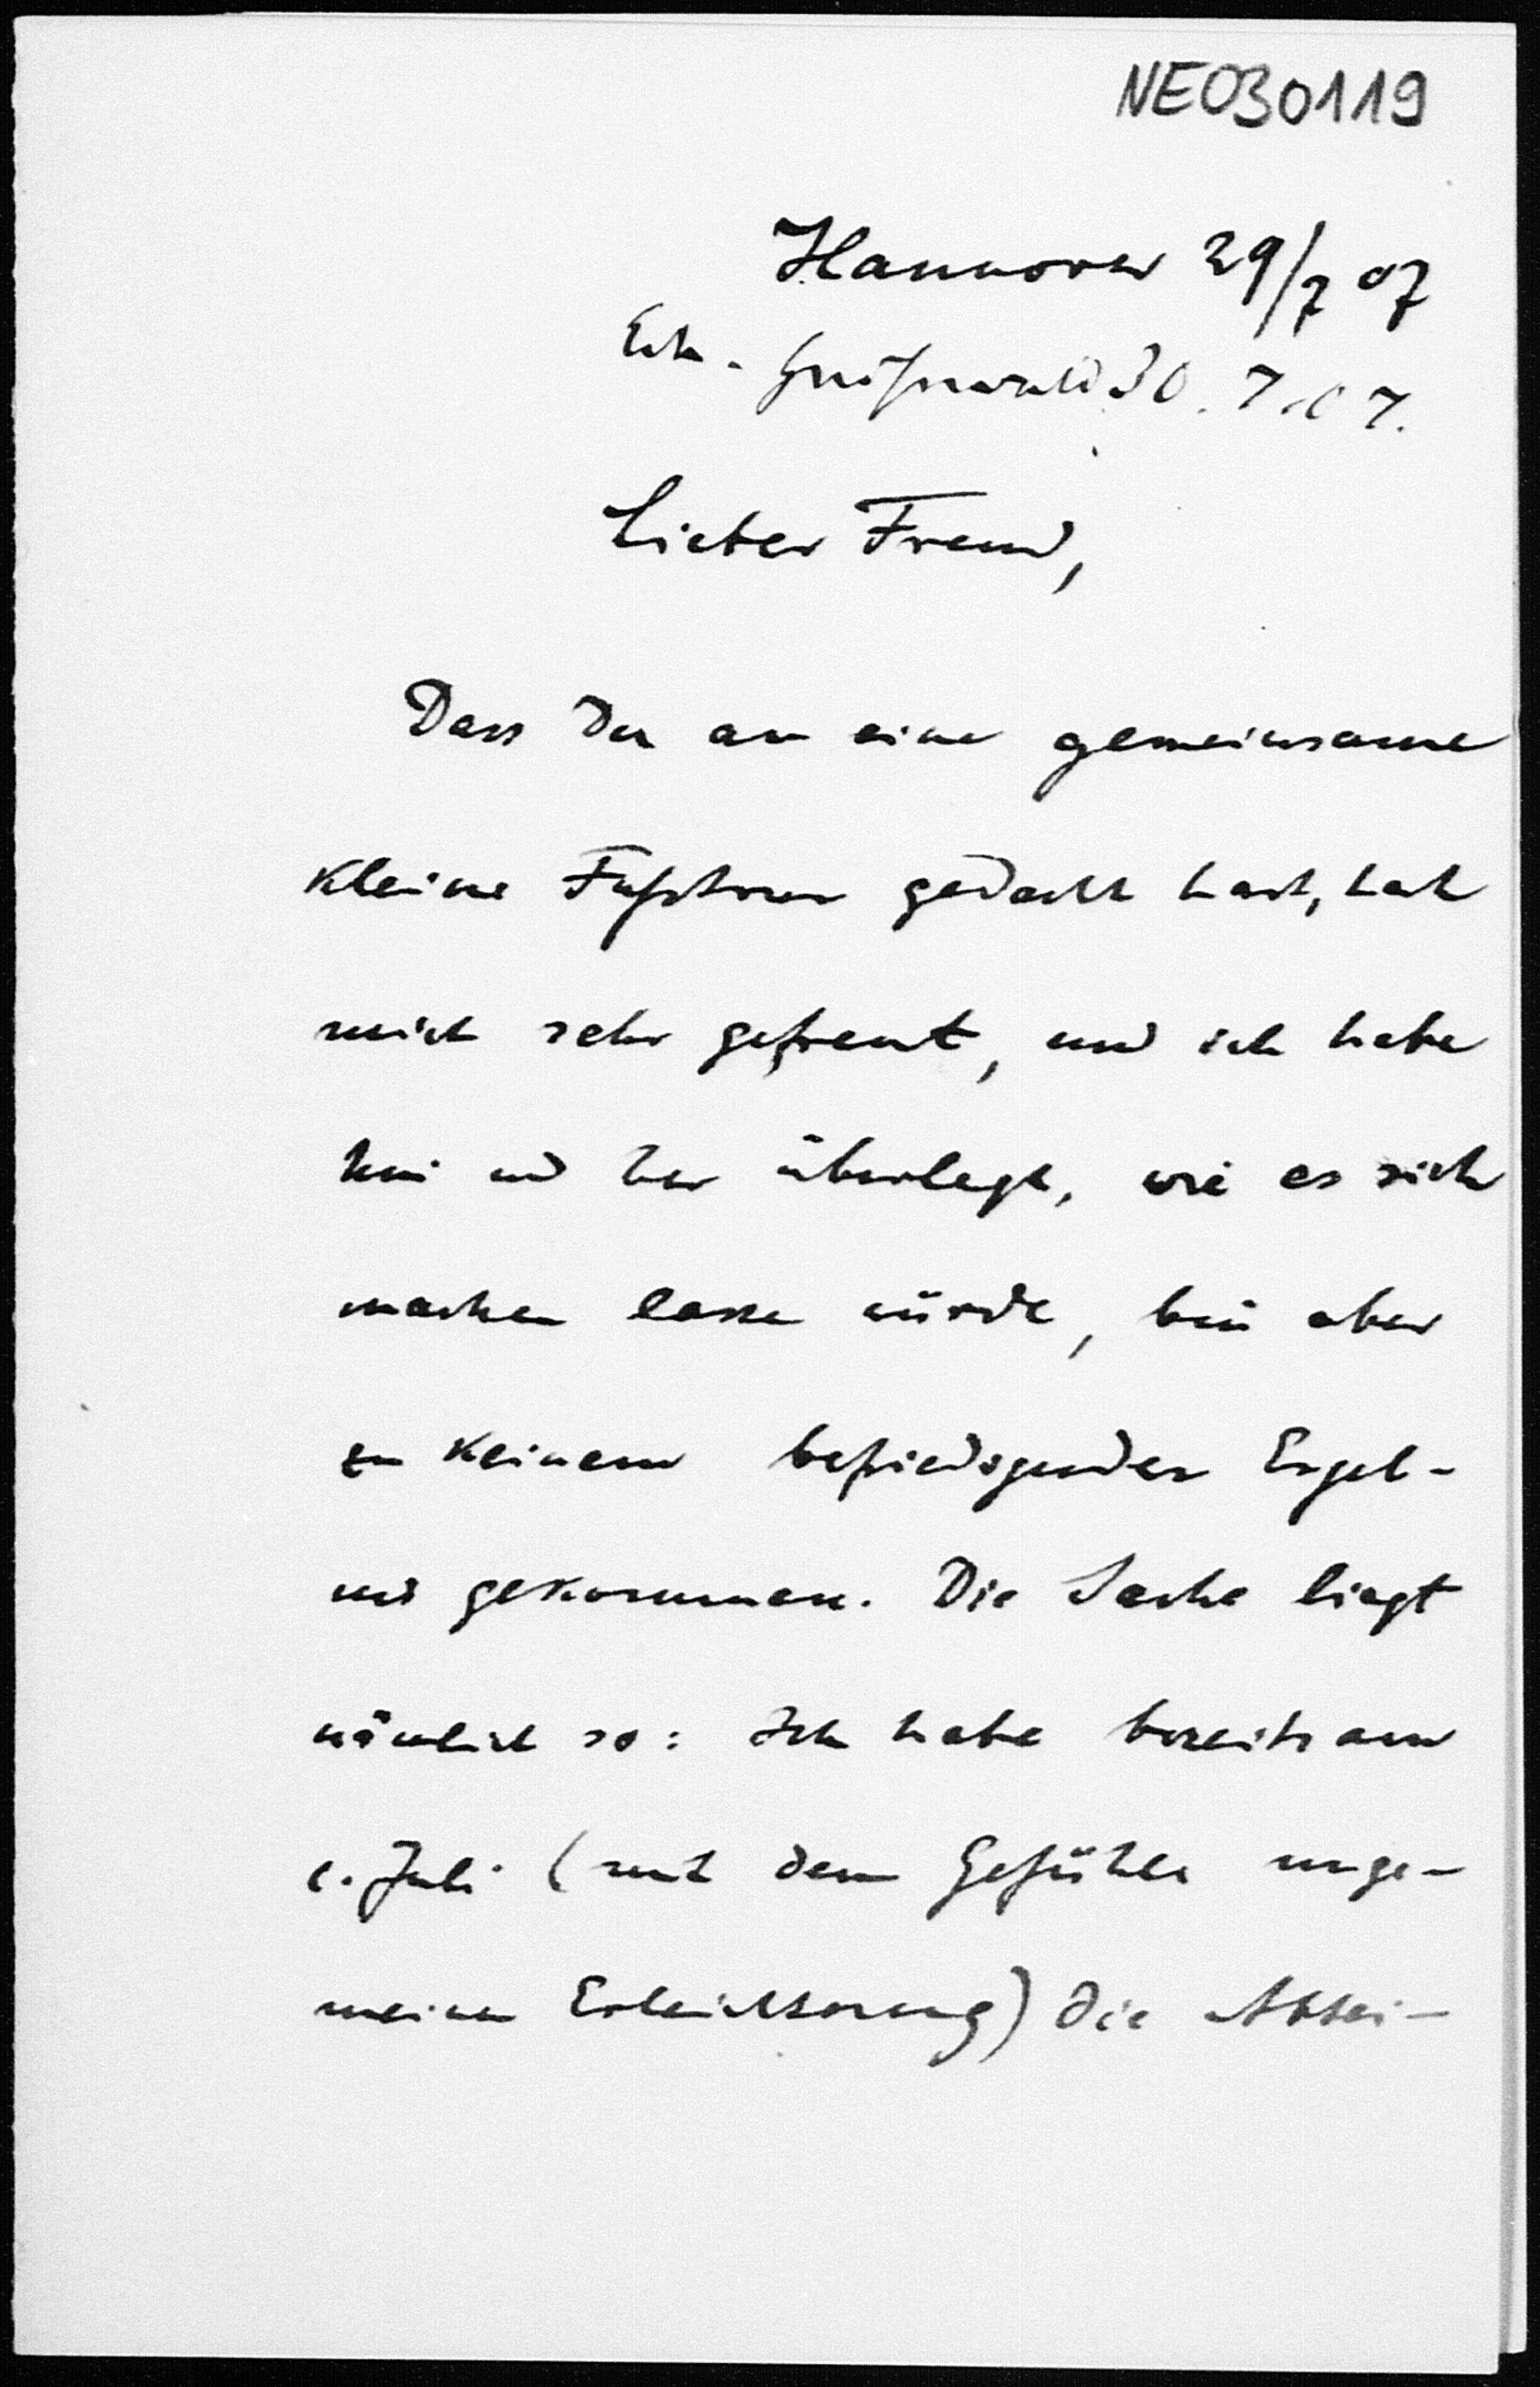 NE030119
Hannover 29/7 07
Erh. Greifswald 30.7.07.
Lieber Freund,
Dass Du an eine gemeinsame
kleine Fußtour gedacht hast, hat
mich sehr gefreut, und ich habe
hin und her überlegt, wie es sich
machen lasse würde, bin aber
zu keinem befriedigenden Ergeb-
nis gekommen. Die Sache liegt
nämlich so: Ich habe bereits am
1. Juli (mit dem Gefühle unge-
meiner Erleichterung) die Abtei-